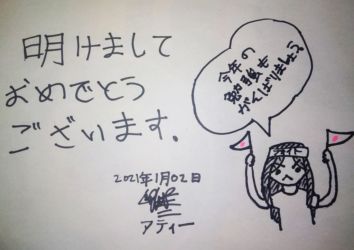 明けまして
おめでとう
ございます.
今年の
勉強も
がんばりましょう
2021年1月02日
アティー